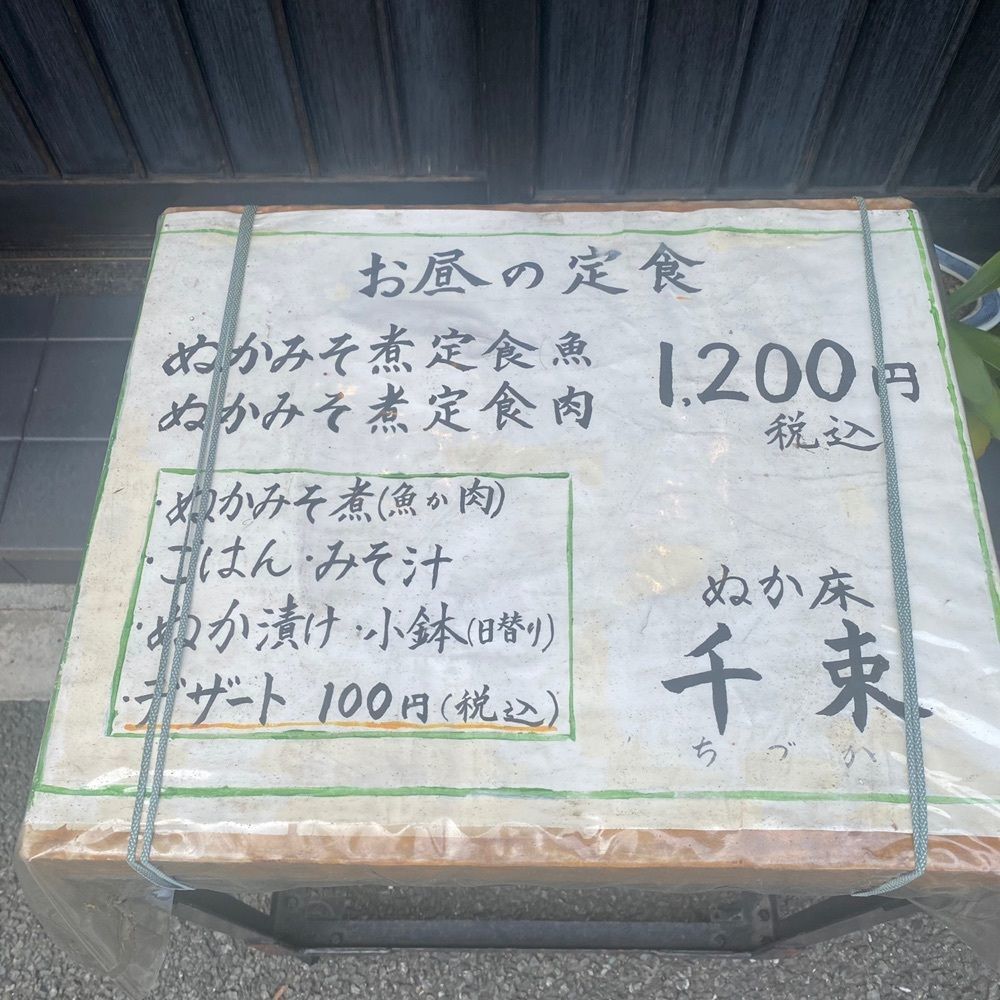 お昼の定食
ぬかみそ煮定食(魚
ぬかみそ煮定食 肉
1,200円
税込
・ぬかみそ煮(魚か肉)
・ごはん・みそ汁
・ぬか漬け・小鉢(日替り)
・デザート 100円(税込)
ぬか床
千束
ちづか